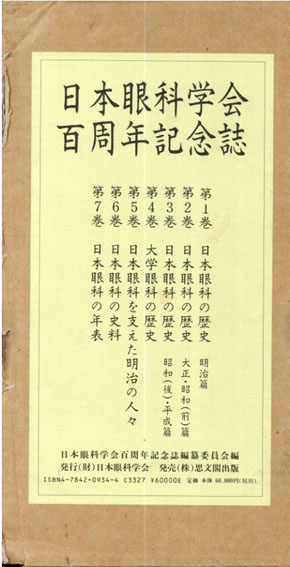 日本眼科学会
百周年記念誌
第1巻 日本眼科の歴史 明治篇
第2巻 日本眼科の歴史 大正・昭和(前)篇
第3巻 日本眼科の歴史 昭和(後)・平成篇
第4巻 大学眼科の歴史
第5巻 日本眼科を支えた明治の人々
第6巻 日本眼科の史料
第7巻 日本眼科の年表
日本眼科学会百周年記念誌編纂委員会編
発行(財)日本眼科学会 発売(株)思文閣出版
ISBN4-7842-0934-4 C3327 ¥60000E 定価 本体 60,000円(税別)